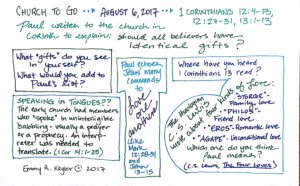 CHURCH TO GO --> AUGUST 6, 2017 --> 1 CORINTHIANS 12:4-13,
12:27-31, 13:1-13
Paul writes to the church in
Corinth to explain: should all believers have
identical gifts?
What "gifts" do you see
in yourself?
What would you add to
Paul's list?
SPEAKING in TONGUES??
The early church had members
who "spoke" in unintelligible
babbling - usually a prayer
or a prophecy. An inter-
preter was needed to
translate. (1 Cor 14:1-25)
Emmy R. Kegler © 2017
Paul echoes
Jesus' many
commands
to
love one another
(like Mark
12:28-31
and John
13-15
Where have you heard
1 Corinthians 13 read?
The theologian
C.S. Lewis
wrote about four kinds of love:
"STORGE"
Family love
"PHILOS"
Friend love
"EROS" - Romantic love
"AGAPE" - Unconditional love
Which one do you think
Paul means?
(C.S. Lewis, The Four Loves)